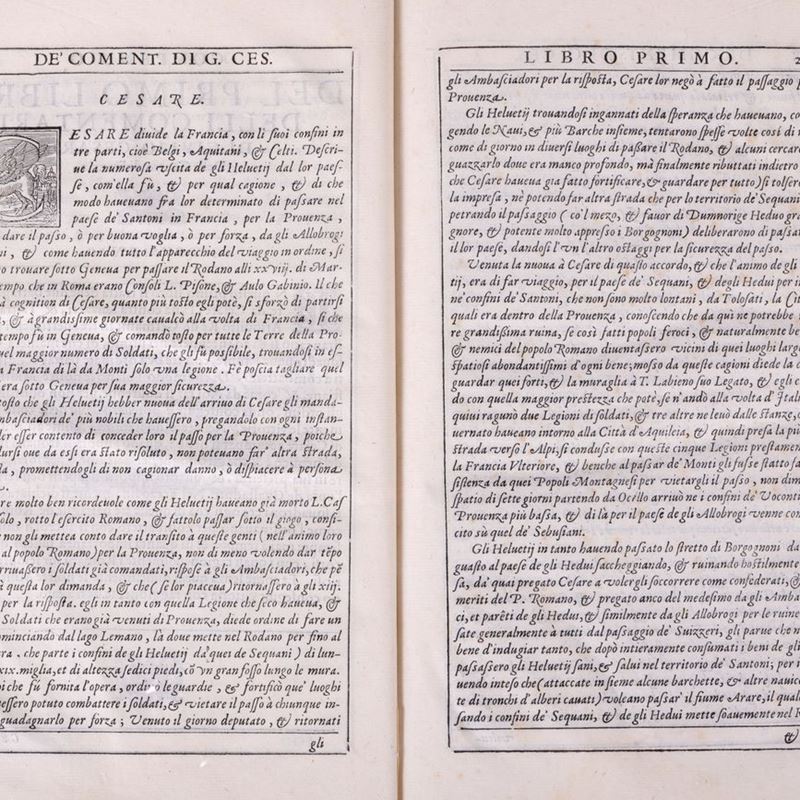 DE' COMENT. DI G. CES.
CESARE.
ESARE diuide la Francia, con li suoi confini in
tre parti, cioè Belgi, Aquitani, & Celti. Descri-
ue la numerosa vscita de gli Heluetij dal lor pae-
se, com'ella fù, & per qual cagione, & di che
modo haueuano fra lor determinato di passare nel
paese de' Santoni in Francia, per la Prouenza,
dare il passo, ò per buona voglia, ò per forza, da gli Allobrogi
ni, & come hauendo tutto l'apparecchio del viaggio in ordine, si
o trouare sotto Geneua per passare il Rodano alli xxviij. di Mar-
empo che in Roma erano Consoli L. Pisone, & Aulo Gabinio. Il che
à cognition di Cesare, quanto più tosto egli potè, si sforzò di partirsi
, & à grandissime giornate caualcò alla volta di Francia, si che
tempo fù in Geneua, & comandò tosto per tutte le Terre della Pro-
quel maggior numero di Soldati, che gli fù possibile, trouandosi in es-
a Francia di là da Monti solo vna legione. Fè poscia tagliare quel
era sotto Geneua per sua maggior sicurezza.
tosto che gli Heluetij hebber nuoua dell'arriuo di Cesare gli manda-
mbasciadori de' più nobili che hauessero, pregandolo con ogni instan-
er esser contento di conceder loro il passo per la Prouenza, poiche
dursi oue da essi era stato risoluto, non poteuano far' altra strada,
la, promettendogli di non cagionar danno, ò dispiacere à persona
re molto ben ricordeuole come gli Heluetij haueano già morto L. Cas
solo, rotto l'esercito Romano, & fattolo passar sotto il giogo, consi-
non gli mettea conto dare il transito à queste genti (nell'animo loro
al popolo Romano) per la Prouenza, non di meno volendo dar tẽpo
rriuassero i soldati già comandati, rispose à gli Ambasciadori, che pẽ
à questa lor dimanda, & che (se lor piaceua) ritornassero à gli xiij.
per la risposta. egli in tanto con quella Legione che seco haueua, &
Soldati che erano già venuti di Prouenza, diede ordine di fare un
minciando dal lago Lemano, là doue mette nel Rodano per fino al
ra. che parte i confini de gli Heluetij da' quei de Sequani) di lun-
xix. miglia, et di altezza sedici piedi, cõ vn gran fosso lungo le mura.
oi che fù fornita l'opera, ordinò le guardie, & fortificò que' luoghi
essero potuto combattere i soldati, & vietare il passo à chiunque in-
guadagnarlo per forza; Venuto il giorno deputato, & ritornati
gli
LIBRO PRIMO. 2
gli Ambasciadori per la risposta, Cesare lor negò à fatto il passaggio p
Prouenza.
Gli Heluetij trouandosi ingannati della speranza che haueuano, co
gendo le Naui, & più Barche insieme, tentarono spesse volte cosi di n
come di giorno in diuersi luoghi di passare il Rodano, & alcuni cercar
guazzarlo doue era manco profondo, mà finalmente ributtati indietro
che Cesare haueua gia fatto fortificare, & guardare per tutto) si tolser
la impresa, nè potendo far altra strada che per lo territorio de' Sequani
petrando il passaggio (co'l mezo, & fauor di Dummorige Heduo gra
gnore, & potente molto appresso i Borgognoni) deliberarono di passar
il lor paese, dandosi l'vn l'altro ostaggi per la sicurezza del passo.
Venuta la nuoua à Cesare di questo accordo, & che l'animo de gli
tij, era di far viaggio, per il paese de' Sequani, & degli Hedui per i
ne' confini de' Santoni, che non sono molto lontani, da Tolosati, la Cit
quali era dentro della Prouenza, conoscendo che da quì ne potrebbe
re grandissima ruina, se così fatti popoli feroci, & naturalmente be
& nemici del popolo Romano diuentassero vicini di quei luoghi larg
spatiosi abondantissimi d'ogni bene; mosso da queste cagioni diede la c
guardar quei forti, & la muraglia à T. Labieno suo Legato, & egli c
do con quella maggior prestezza che potè, se n'andò alla volta d'Ital
quiui ragunò due Legioni di soldati, & tre altre ne leuò dalle stanze, c
uernato haueano intorno alla Città d'Aquileia, & quindi presa la più
strada verso l'Alpi, si condusse con queste cinque Legioni prestamen
la Francia Vlteriore, & benche al passar de' Monti gli fusse stato fa
sistenza da quei Popoli Montagnesi per vietargli il passo, non dim
spatio di sette giorni partendo da Ocello arriuò ne i confini de' Vocont
Prouenza più bassa, & di là per il paese de gli Allobrogi venne con
cito sù quel de' Sebusiani.
Gli Heluetij in tanto hauendo passato lo stretto di Borgognoni da
guasto al paese de gli Hedui saccheggiando, & ruinando hostilmente
sa, da' quai pregato Cesare a volergli soccorrere come confederati, &
meriti del P. Romano, & pregato anco del medesimo da gli Amba
ci, et parẽti de gli Hedui, & similmente da gli Allobrogi per le ruine
fate generalmente à tutti dal passaggio de' Suizzeri, gli parue che n
bene d'indugiar tanto, che dopò intieramente consumati i beni de gli
passassero gli Heluetij sani, & salui nel territorio de' Santoni; per i
uendo inteso che (attaccate insieme alcune barchette, & altre nauice
te di tronchi d'alberi cauati) voleano passar' il fiume Arare, il qual
sando i confini de' Sequani, & de gli Hedui mette soauemente nel R
&